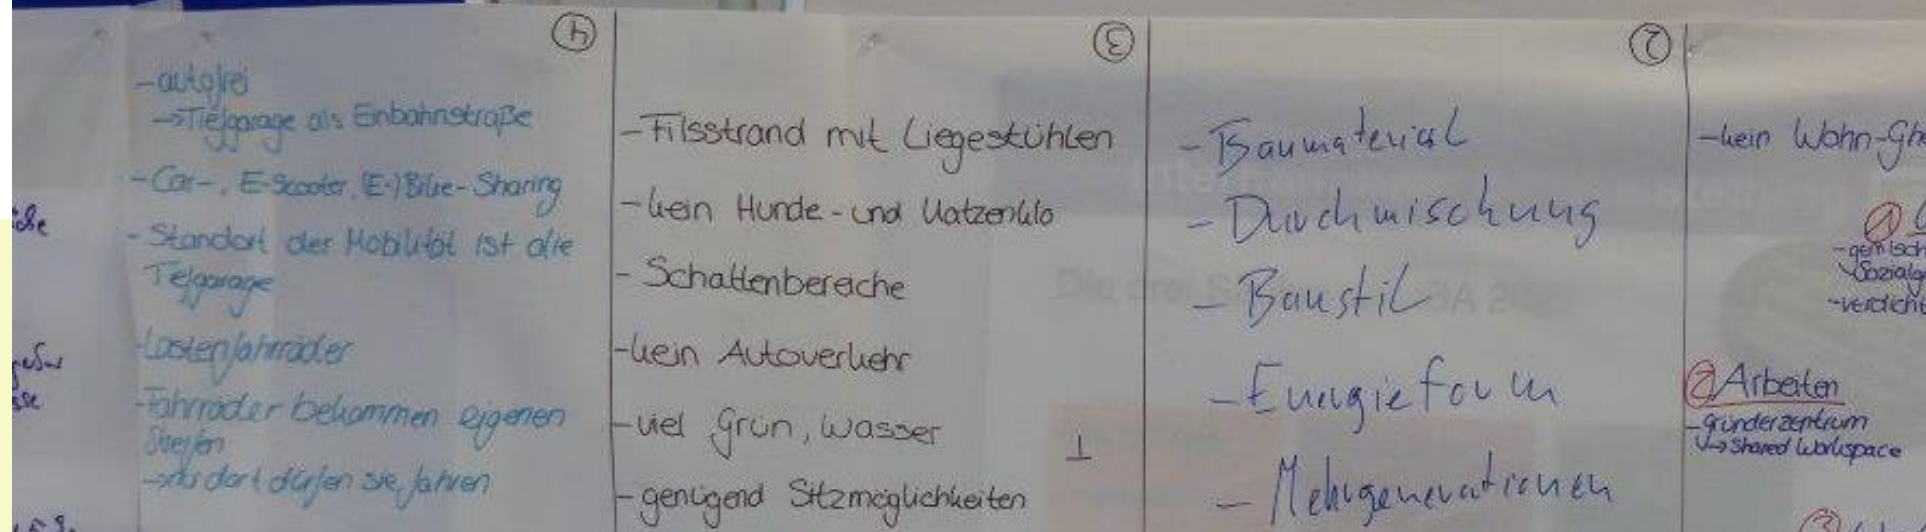 ④
-autofrei
→Tiefgarage als Einbahnstraße
-Car-, E-Scooter, (E-)Bike-Sharing
-Standort der Mobilität ist die
Teifgarage
-Lastenfahrräder
-Fahrräder bekommen eigenen
Streifen
dort dürfen sie fahren
③
-Filsstrand mit Liegestühlen
-kein Hunde-und Katzenklo
-Schattenbereiche
-kein Autoverkehr
-viel Grün, Wasser
-genügend Sitzmöglichkeiten
②
-Baumaterial
-Durchmischung
-Baustil
-Energieform
-Mehrgenerationen
-kein Wohn-Gh
①
-gemisch
-verdicht
② Arbeiten
-gründerzentrum
↳ Shared Workspace